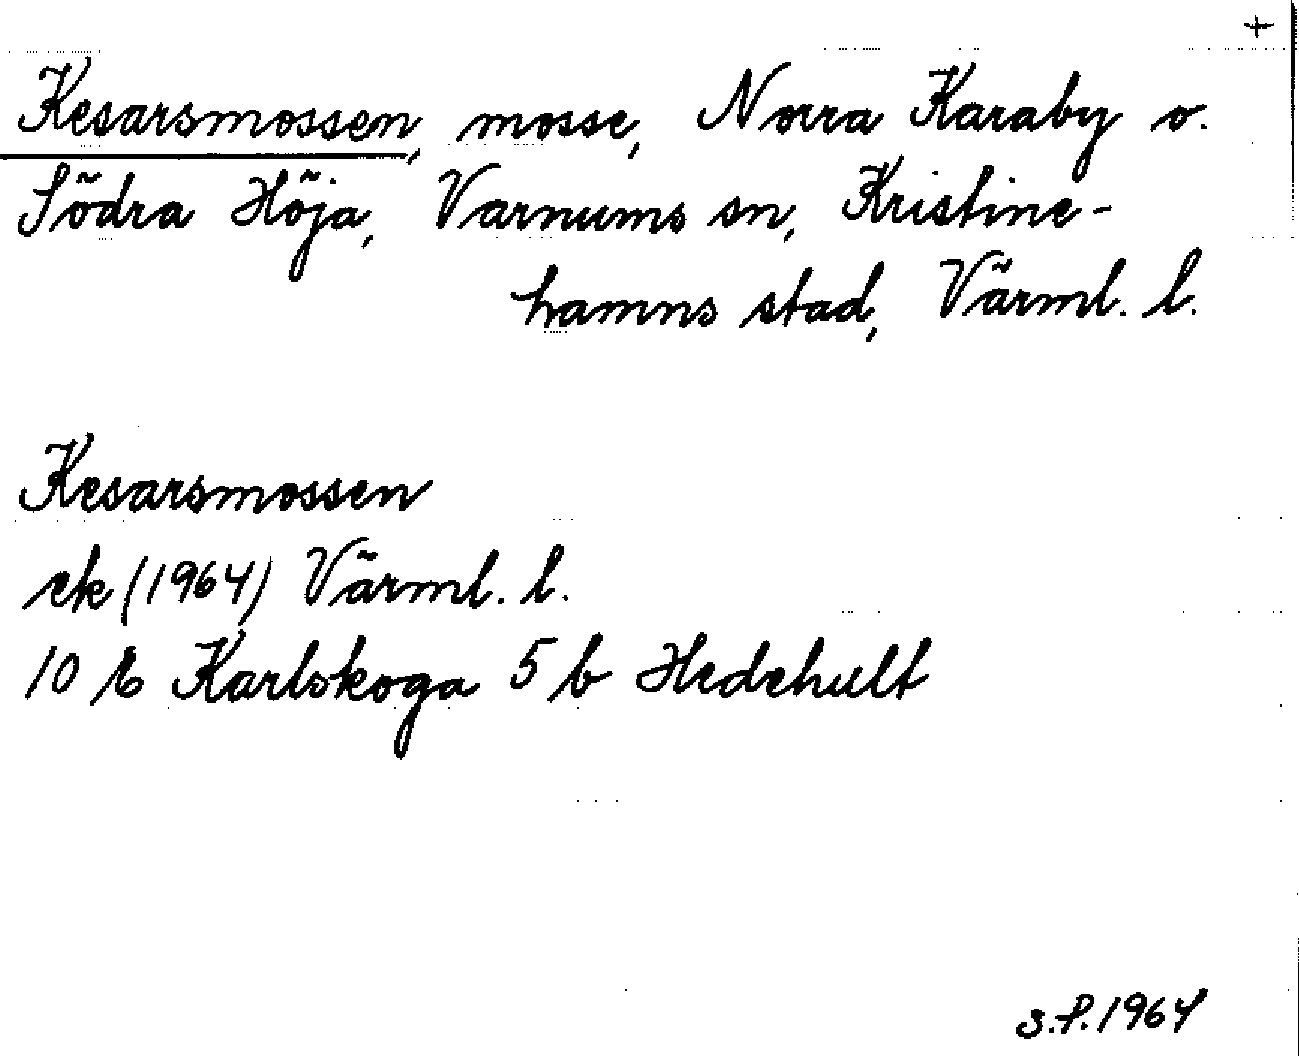 +
Kesarsmossen, mosse, Norra Karaby o.
Södra Höja, Varnums sn, Kristine-
hamns stad, Värml. l.
Kesarsmossen
ek (1964) Värml. l.
10 E Karlskoga 5 b Hedehult
S.F. 1964